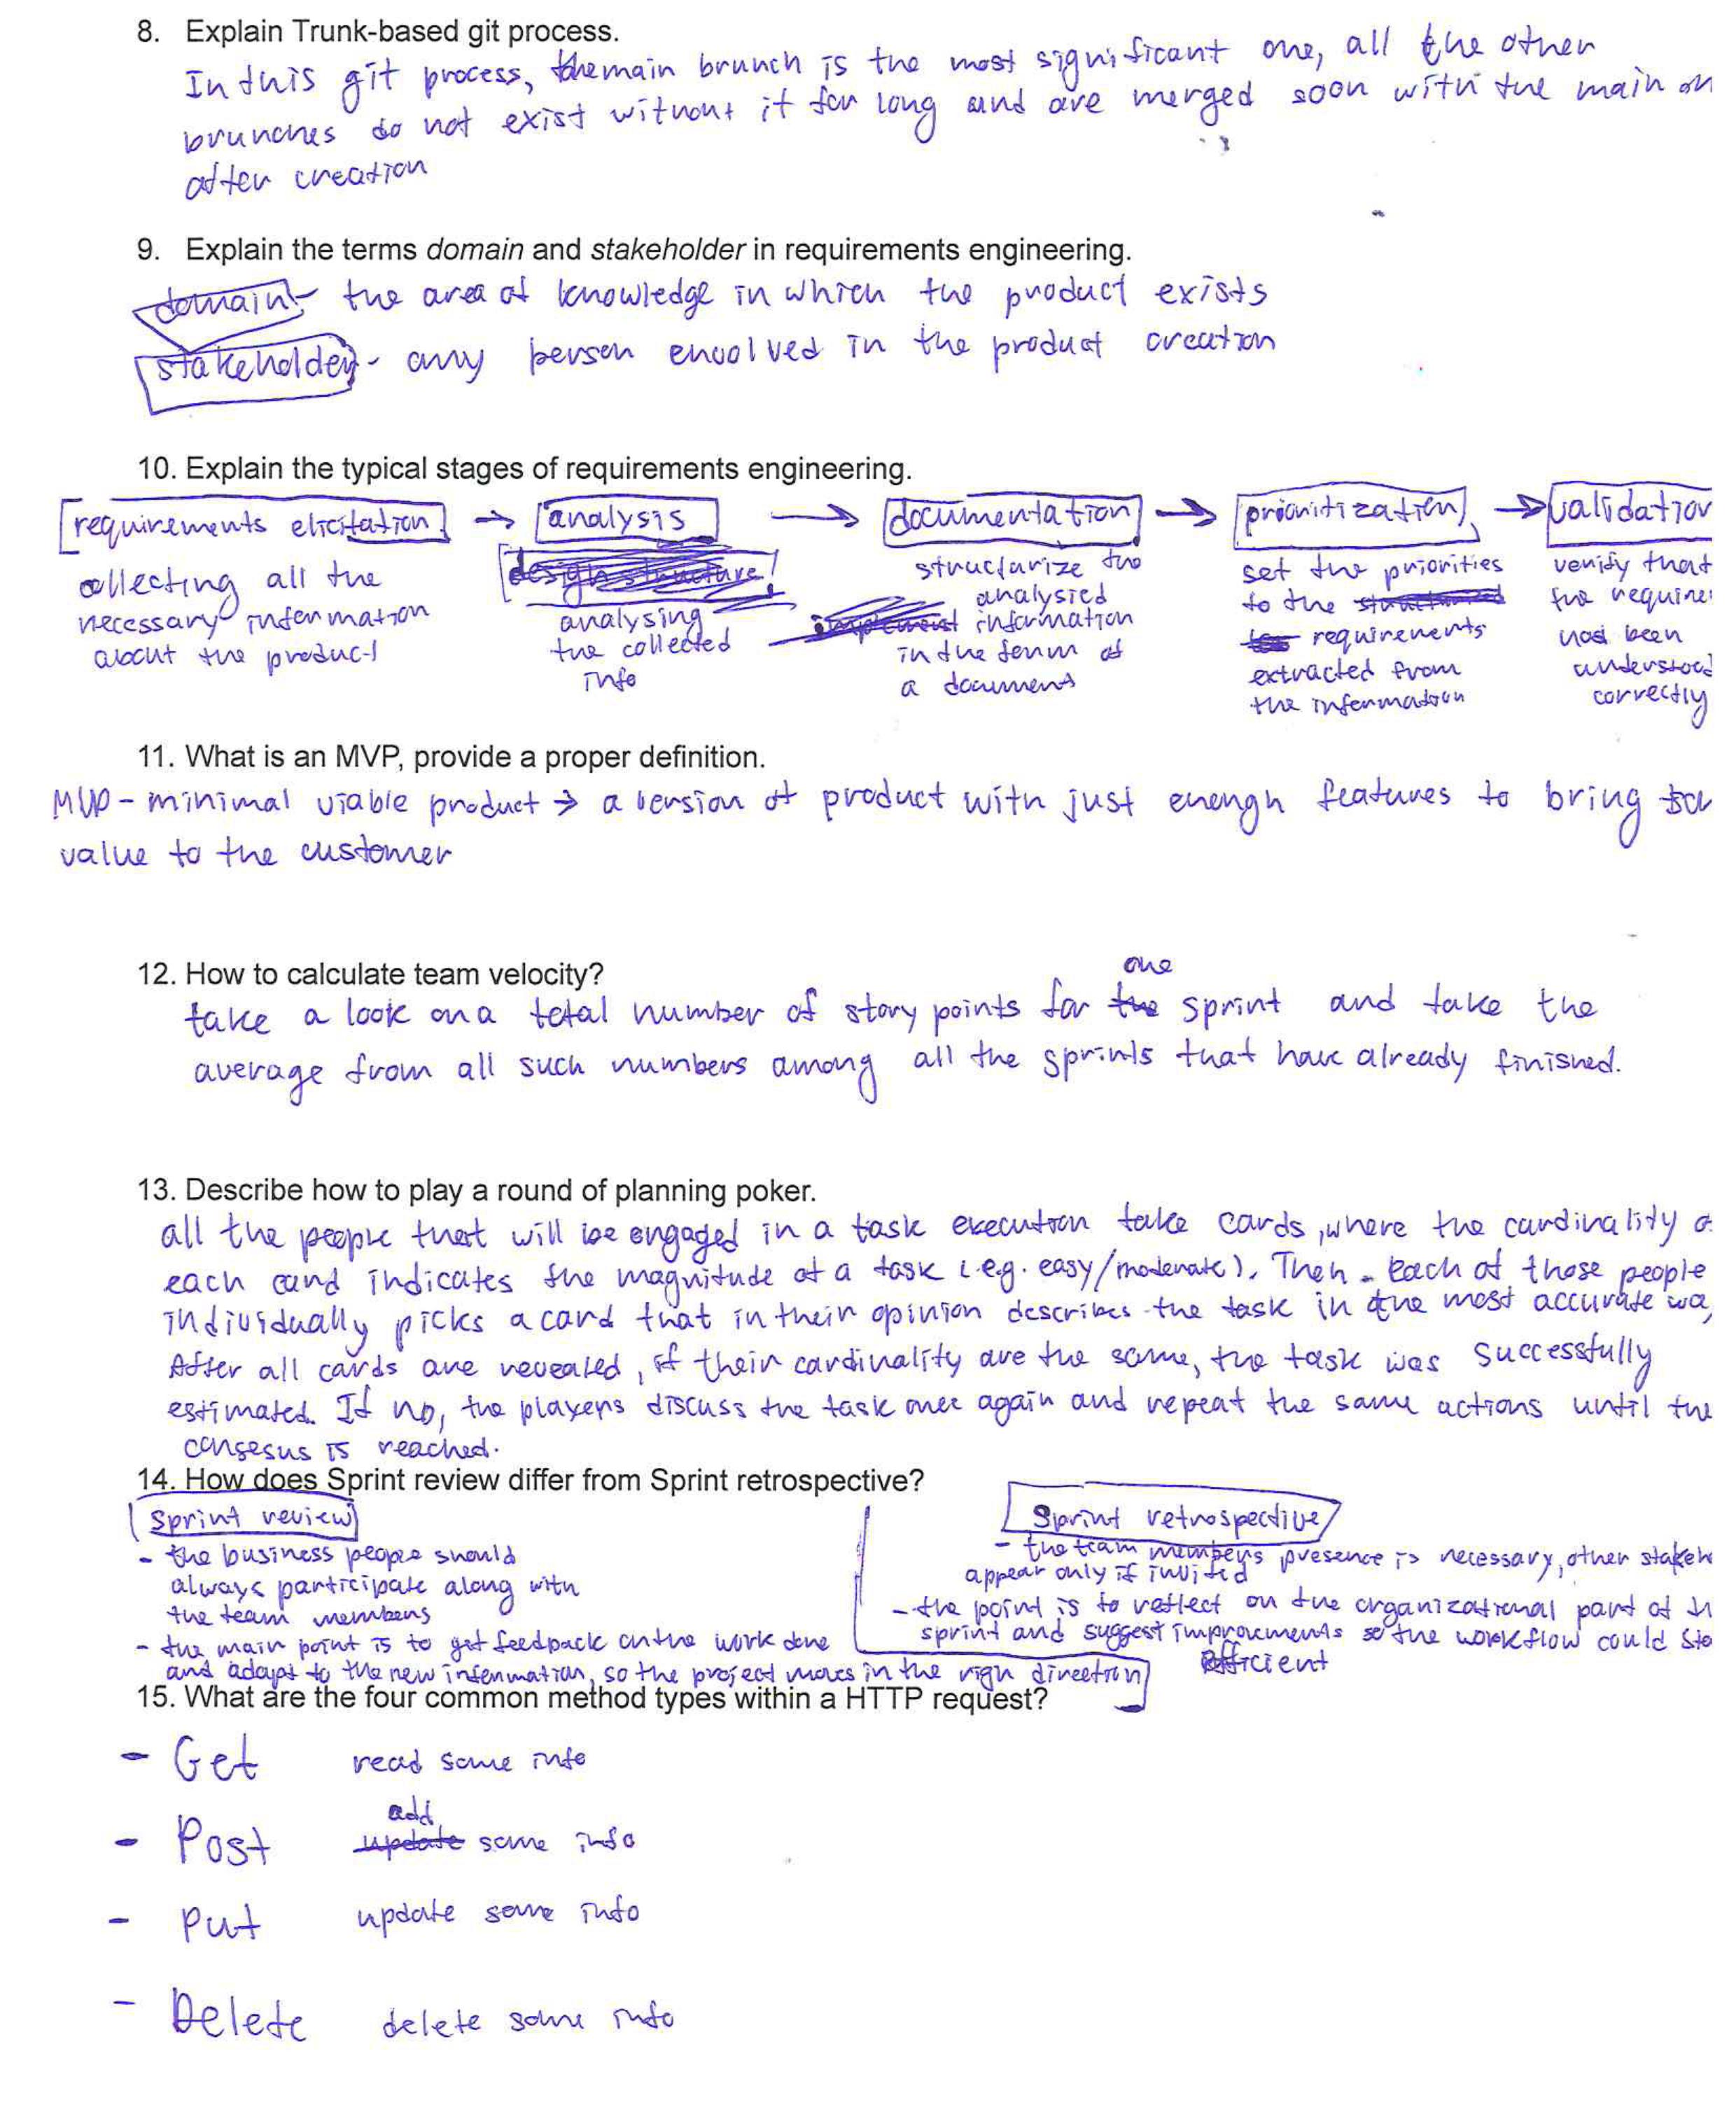 8. Explain Trunk-based git process.
In this git process, the main brunch is the most significant one, all the other
brunches do not exist without it for long and are merged soon with the main on
after creation
9. Explain the terms domain and stakeholder in requirements engineering.
domain - the area of knowledge in which the product exists
stakeholder - any person envolved in the product creation
10. Explain the typical stages of requirements engineering.
requirements elicitation → analysis → documentation → prioritization → validation
collecting all the
necessary information
about the product
design structure
analysing
the collected
info
structurize the
analysied
implement information
in the form of
a document
set the priorities
to the structurized
requirements
extracted from
the information
verify that
the require
had been
understood
correctly
11. What is an MVP, provide a proper definition.
MVP - minimal viable product → a version of product with just enough features to bring
value to the customer
12. How to calculate team velocity?
one
take a look on a total number of story points for the sprint and take the
average from all such numbers among all the sprints that have already finished.
13. Describe how to play a round of planning poker.
all the people that will be engaged in a task execution take cards, where the cardinality o
each card indicates the magnitude of a task (e.g. easy/moderate). Then each of those people
individually picks a card that in their opinion describes the task in the most accurate wa
After all cards are revealed, if their cardinality are the same, the task was successfully
estimated. If no, the players discuss the task once again and repeat the same actions until the
consesus is reached.
14. How does Sprint review differ from Sprint retrospective?
Sprint review
- the business people should
always participate along with
the team members
- the main point is to get feedback on the work done
and adapt to the new information, so the project moves in the righ direction
Sprint retrospective
- the team members presence is necessary, other stakeh
appear only if invited
- the point is to reflect on the organizational part of th
sprint and suggest improvements so the workflow could sta
efficient
15. What are the four common method types within a HTTP request?
- Get read some info
add
- Post update some info
- Put update some info
- Delete delete some info